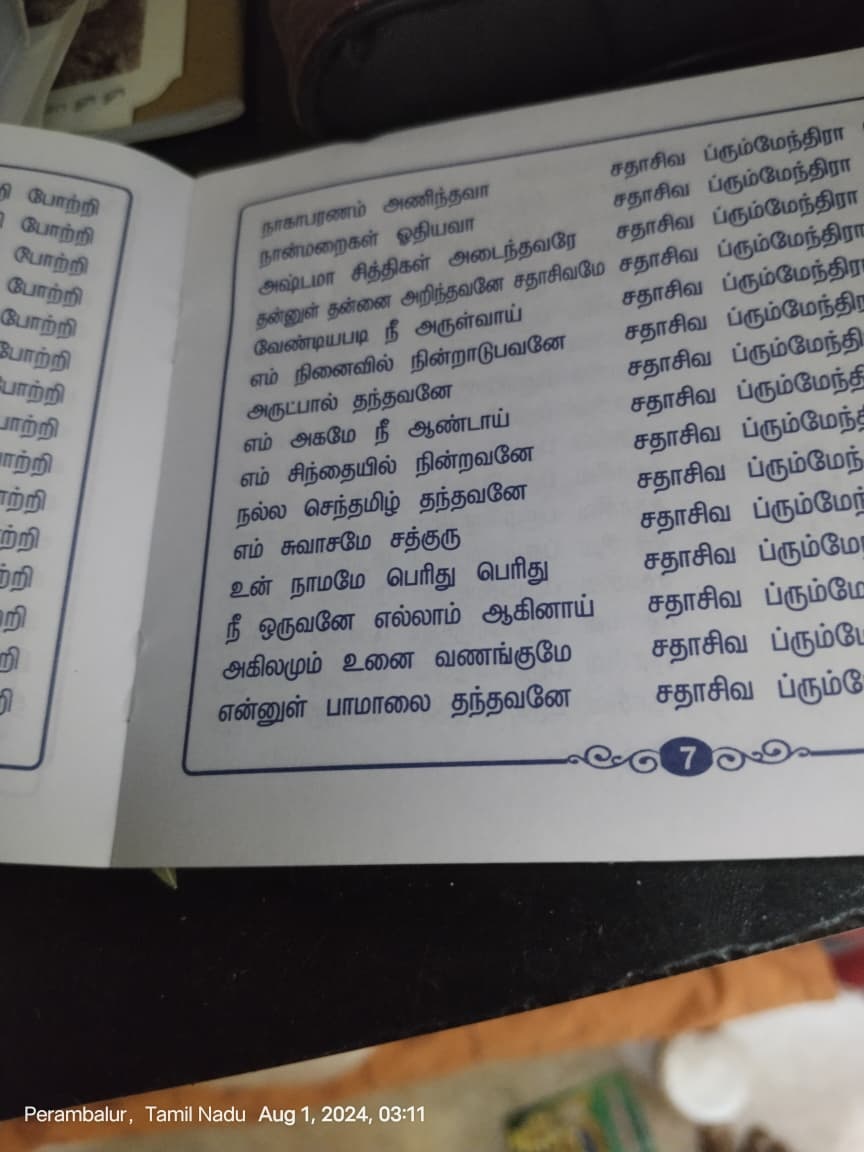 போற்றி
போற்றி
போற்றி
போற்றி
போற்றி
நாகாபரணம் அணிந்தவா சதாசிவ ப்ரும்மேந்திரா
நான்மறைகள் ஓதியவா சதாசிவ ப்ரும்மேந்திரா
அஷ்டமா சித்திகள் அடைந்தவரே சதாசிவ ப்ரும்மேந்திரா
தன்னுள் தன்னை அறிந்தவனே சதாசிவமே சதாசிவ ப்ரும்மேந்திரா
வேண்டியபடி நீ அருள்வாய் சதாசிவ ப்ரும்மேந்திரா
எம் நினைவில் நின்றாடுபவனே சதாசிவ ப்ரும்மேந்திர
அருட்பால் தந்தவனே சதாசிவ ப்ரும்மேந்தி
எம் அகமே நீ ஆண்டாய் சதாசிவ ப்ரும்மேந்தி
எம் சிந்தையில் நின்றவனே சதாசிவ ப்ரும்மேந்
நல்ல செந்தமிழ் தந்தவனே சதாசிவ ப்ரும்மேந்
எம் சுவாசமே சத்குரு சதாசிவ ப்ரும்மேந்
உன் நாமமே பெரிது பெரிது சதாசிவ ப்ரும்மே
நீ ஒருவனே எல்லாம் ஆகினாய் சதாசிவ ப்ரும்மே
அகிலமும் உனை வணங்குமே சதாசிவ ப்ரும்மே
என்னுள் பாமாலை தந்தவனே சதாசிவ ப்ரும்மே
7
Perambalur, Tamil Nadu Aug 1, 2024, 03:11